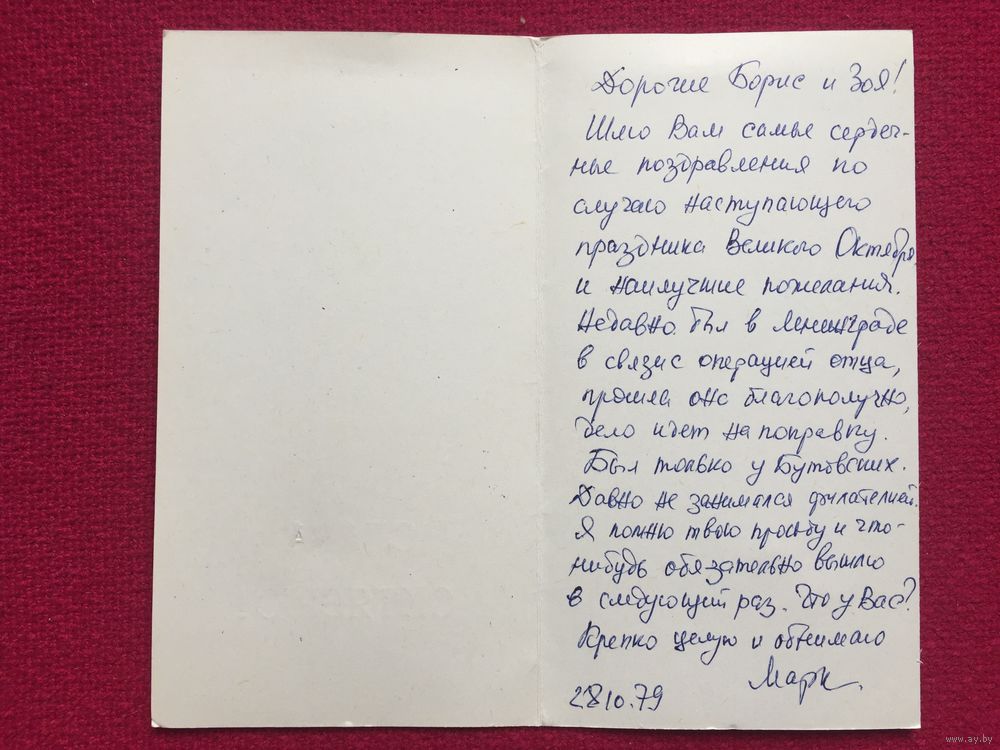 Дорогие Борис и Зоя!
Шлю Вам самые сердеч-
ные поздравления по
случаю наступающего
праздника Великого Октября
и наилучшие пожелания.
Недавно был в Ленинграде
в связи с операцией отца,
прошла она благополучно,
дело идет на поправку.
Был только у Бутовских.
Давно не занимался филателией.
Я помню твою просьбу и что-
нибудь обязательно вышлю
в следующий раз. Что у Вас?
Крепко целую и обнимаю
Марк.
28 10.79
www.ay.by